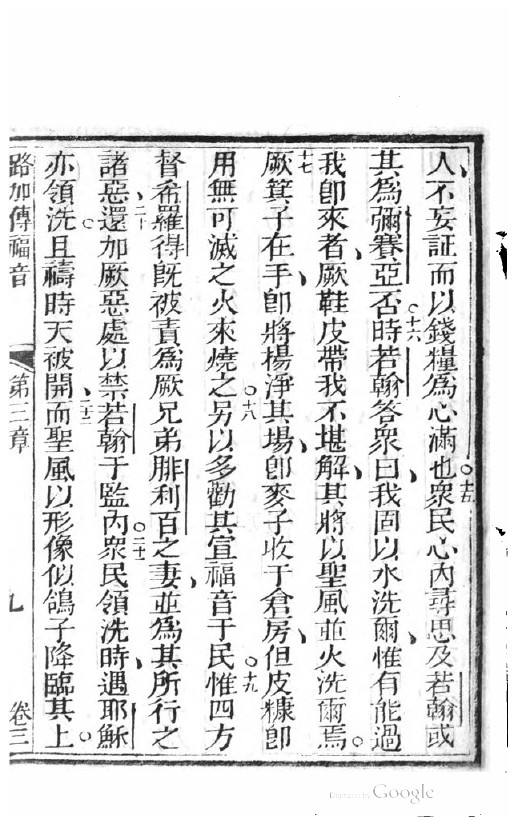 人不妄証而以錢糧為心滿也○十五衆民心內尋思及若翰或
其為彌賽亞否○十六時若翰答衆曰我固以水洗爾惟有能過
我即來者厥鞋皮帶我不堪解其將以聖風並火洗爾焉○
十七厥箕子在手即將揚淨其場即麥子收于倉房但皮糠即
用無可滅之火來燒之○十八另以多勸其宣福音于民○十九惟四方
督希羅得旣被責為厥兄弟腓利百之妻並為其所行之
諸惡二十還加厥惡處以禁若翰于監內○二十一衆民領洗時遇耶穌
亦領洗○且禱時天被開二十二而聖風以形像似鴿子降臨其上○
路加傳福音 第三章 九 卷三
Digitized by Google